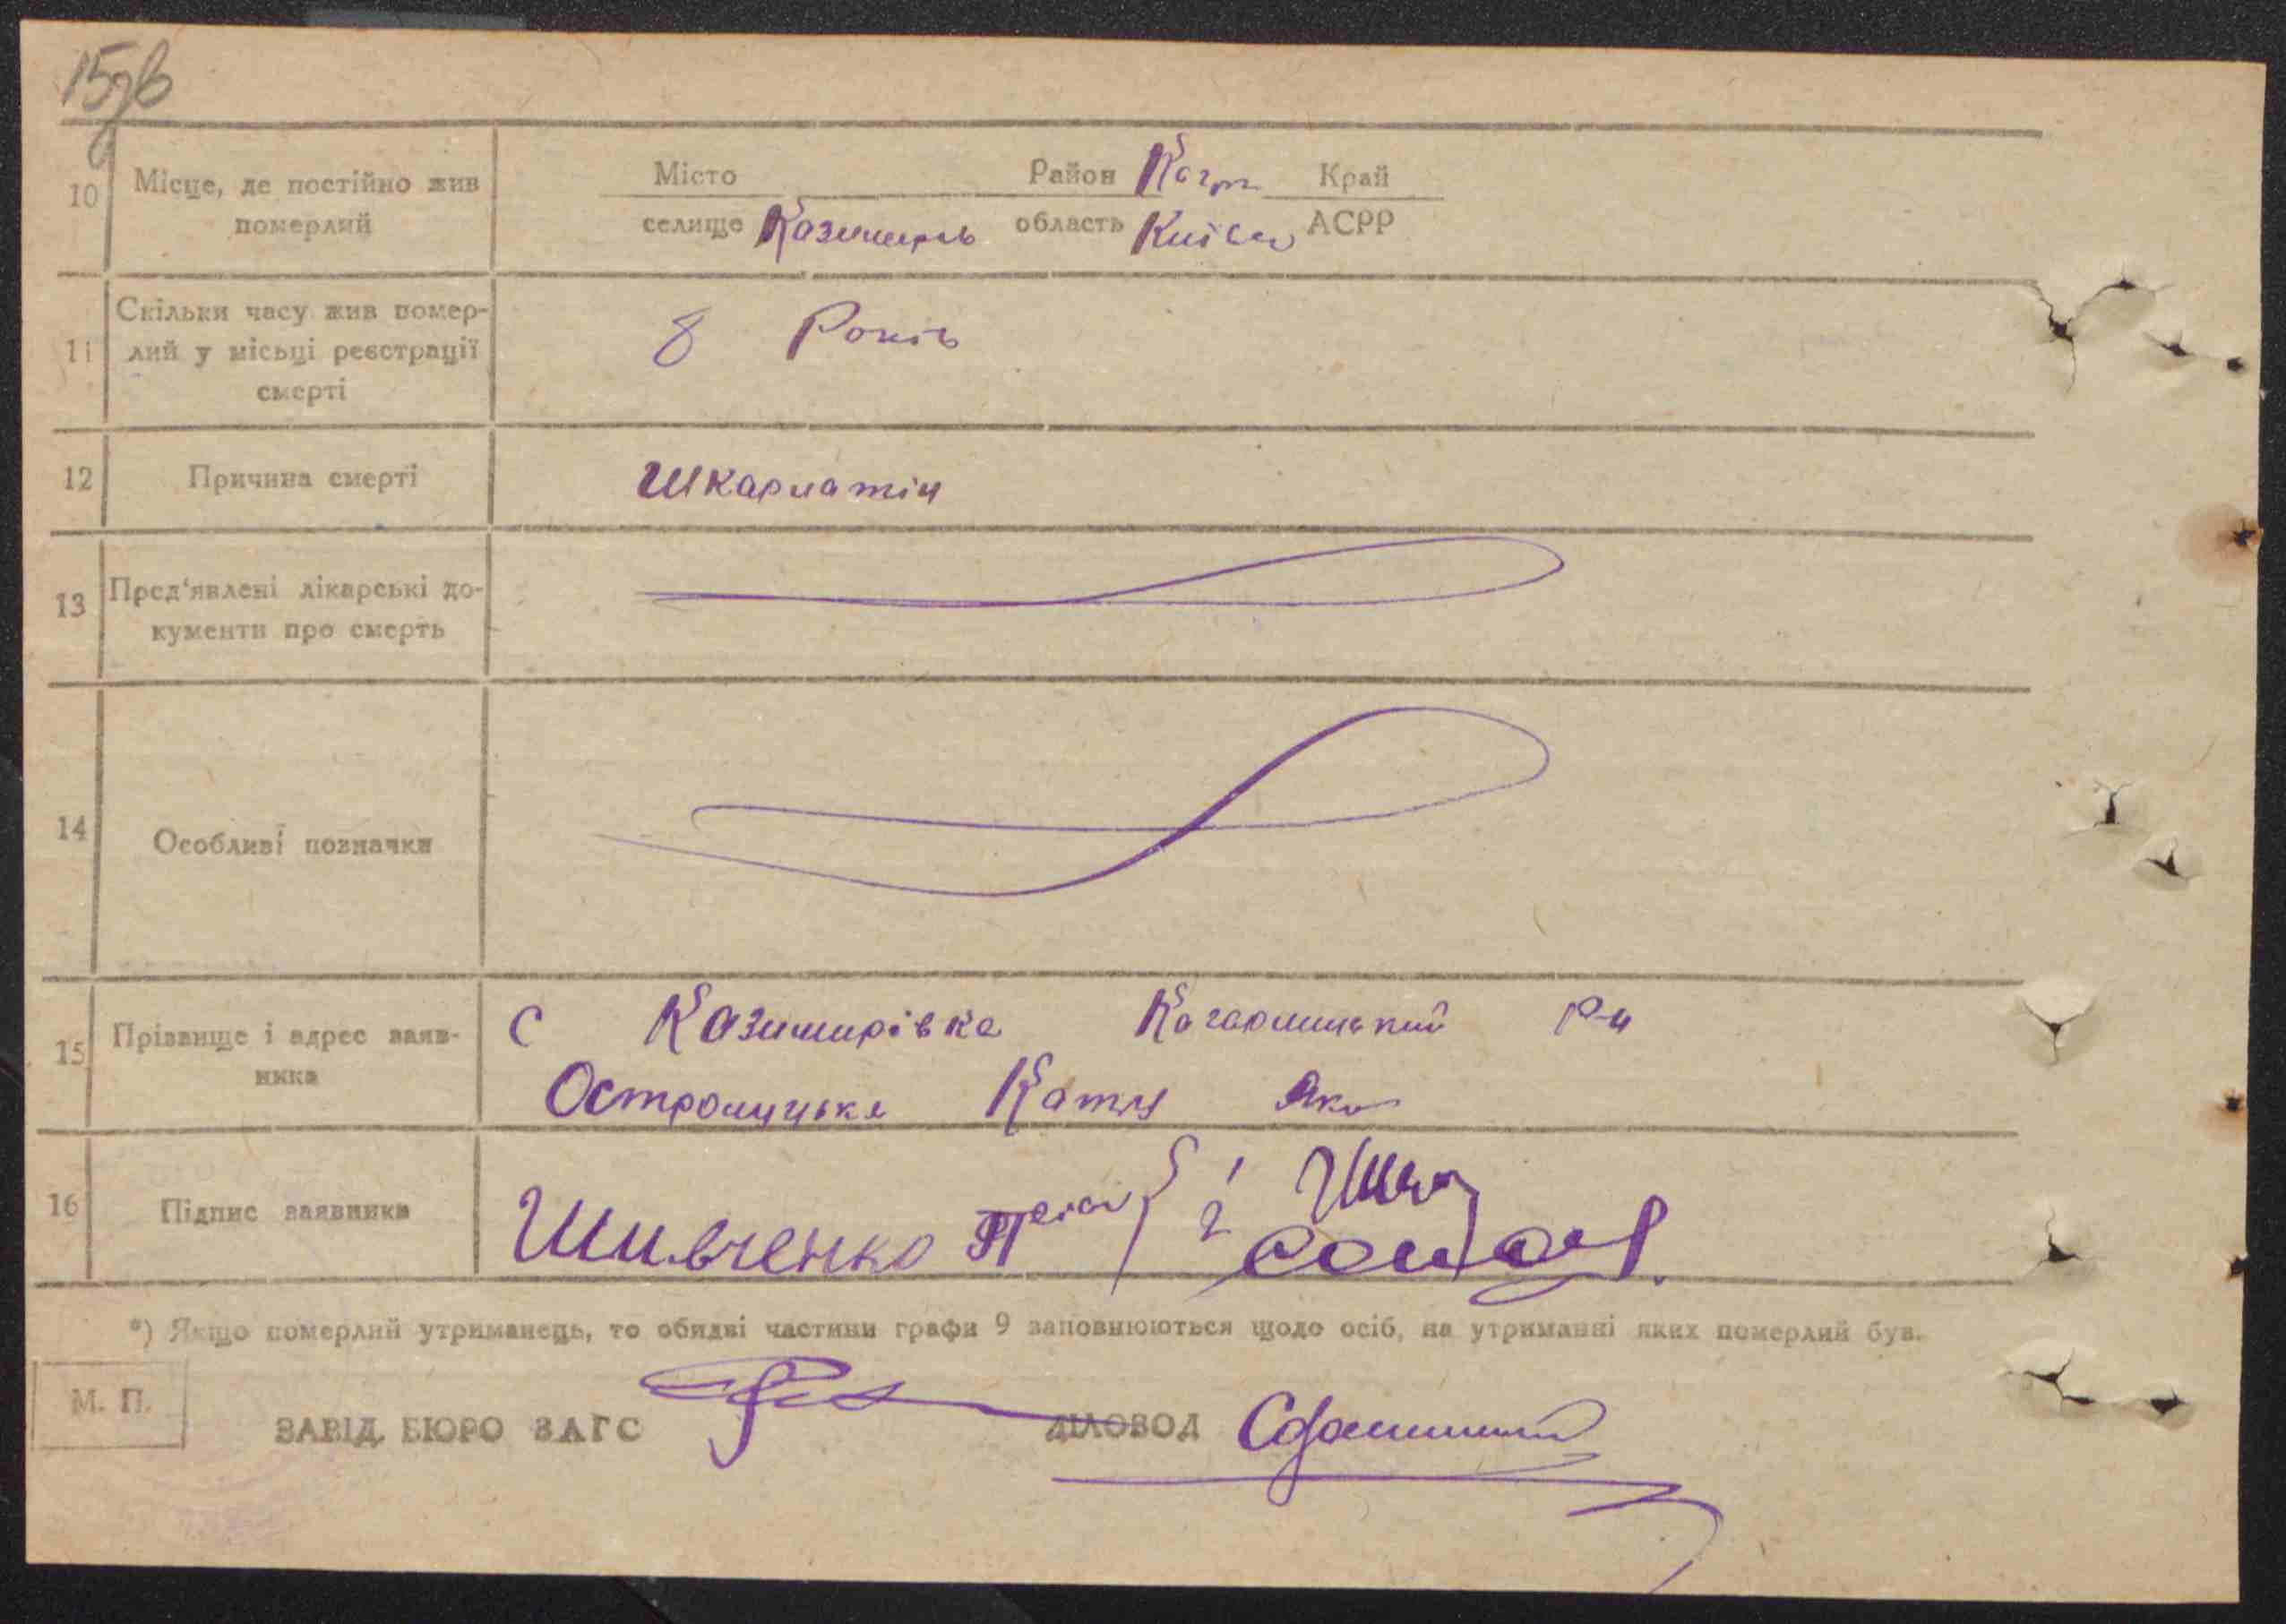 15зв
10 Місце, де постійно жив померлий
Місто Район Кагр Край
селище Казимирів область Київсь АСРР
11 Скільки часу жив помер-
лий у місьці реєстрації
смерті
8 Років
12 Причина смерті Шкарлатін
13 Пред'явлені лікарські до-
кументи про смерть
14 Особливі позначки
15 Прізвище і адрес заяв-
ника
с Казимирівка Кагарлицький р-н
Остролуцька Катя Яко
16 Підпис заявника
*) Якщо померлий утриманець, то обидві частини графи 9 заповнюються щодо осіб, на утриманні яких померлий був.
М. П.
ЗАВІД. БЮРО ЗАГС ДІЛОВОД